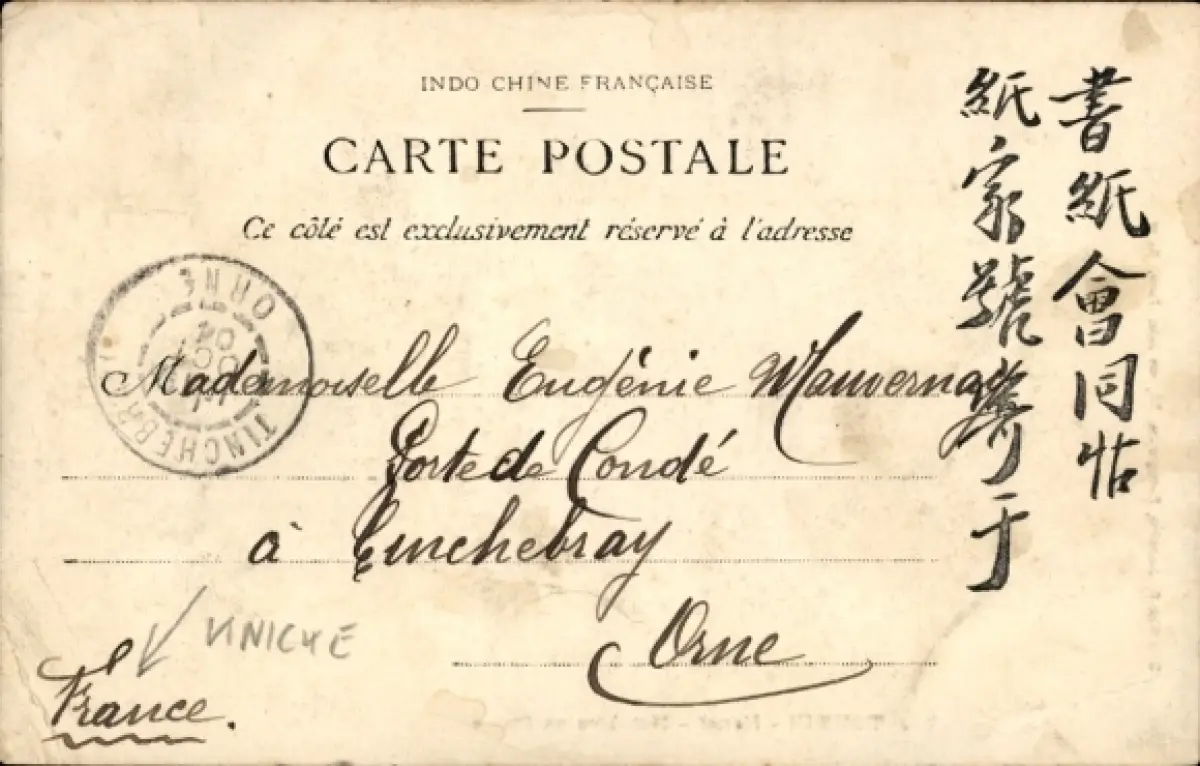 INDO CHINE FRANÇAISE
CARTE POSTALE
Ce côté est exclusivement réservé à l'adresse
書紙會同帖
紙家號寄于
ORNE
TINCHEBRAY
OCT
04
Mademoiselle Eugénie Mauvernay
Porte de Condé
à Tinchebray
Orne
France.